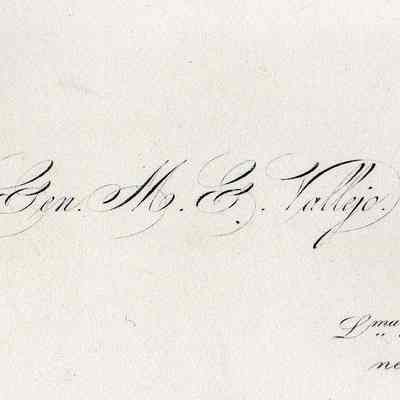 Gen. M. G. Vallejo.
L
ne